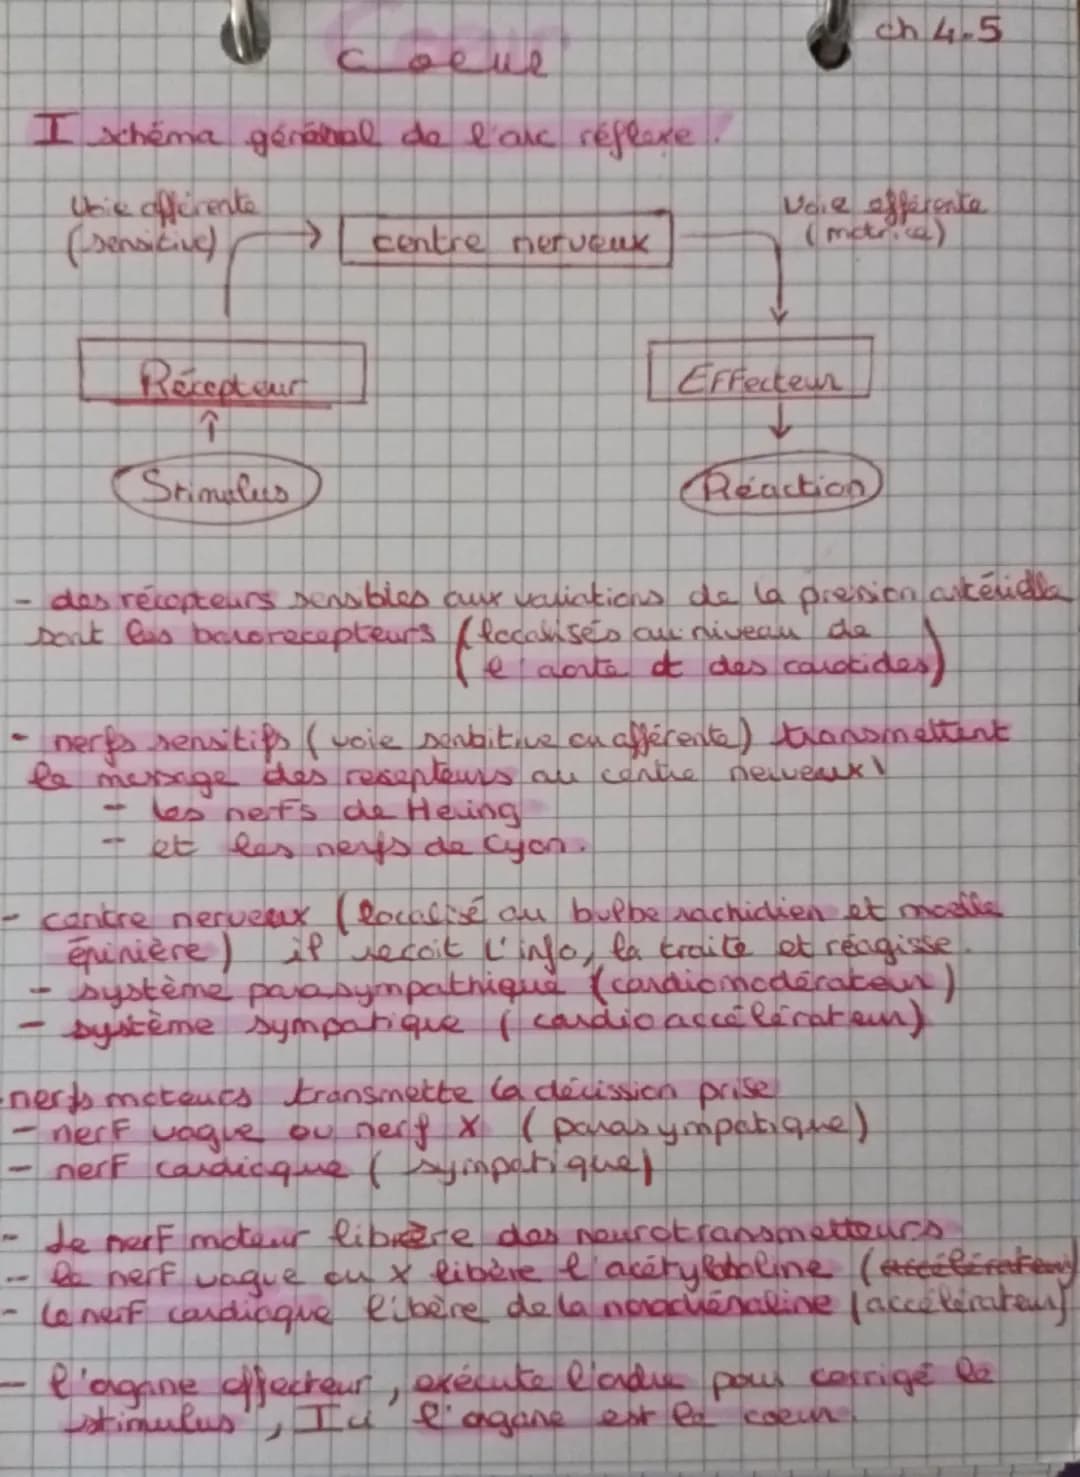 ch 4.5
Coeur
I schéma général de l'arc réflexe.
Voie afférente
(sensitive)
centre nerveux
Voie efférente
(motrice)
Récepteur
Effecteur
Stimulus
Réaction
- des récepteurs sensibles aux variations de la pression artérielle
sont les barorecepteurs (localisés au niveau de
l'aorte et des carotides)
- nerfs sensitifs (voie senbitive ou afférente) transmettent
le message des recepteurs au centre nerveux
- les nerfs de Hering
- et les nerfs de Cyon.
- centre nerveux (localisé au bulbe rachidien et moelle
épinière) il recoit l'info, la traite et réagisse.
- système parasympathique (cardiomodérateur)
- système sympatique (cardioaccélérateur)
nerfs moteurs transmette la décission prise
- nerf vague ou nerf X (parasympatique)
- nerf cardiaque (sympatique)
- Le nerf moteur libère des neurotransmetteurs
- le nerf vague ou X libère l'acétylcholine (accélérateur)
- le nerf cardiaque libère de la noradrénaline (accélérateur)
- l'organe effecteur, exécute l'ordre pour corrigé le
stimulus, Ici l'organe est le coeur.